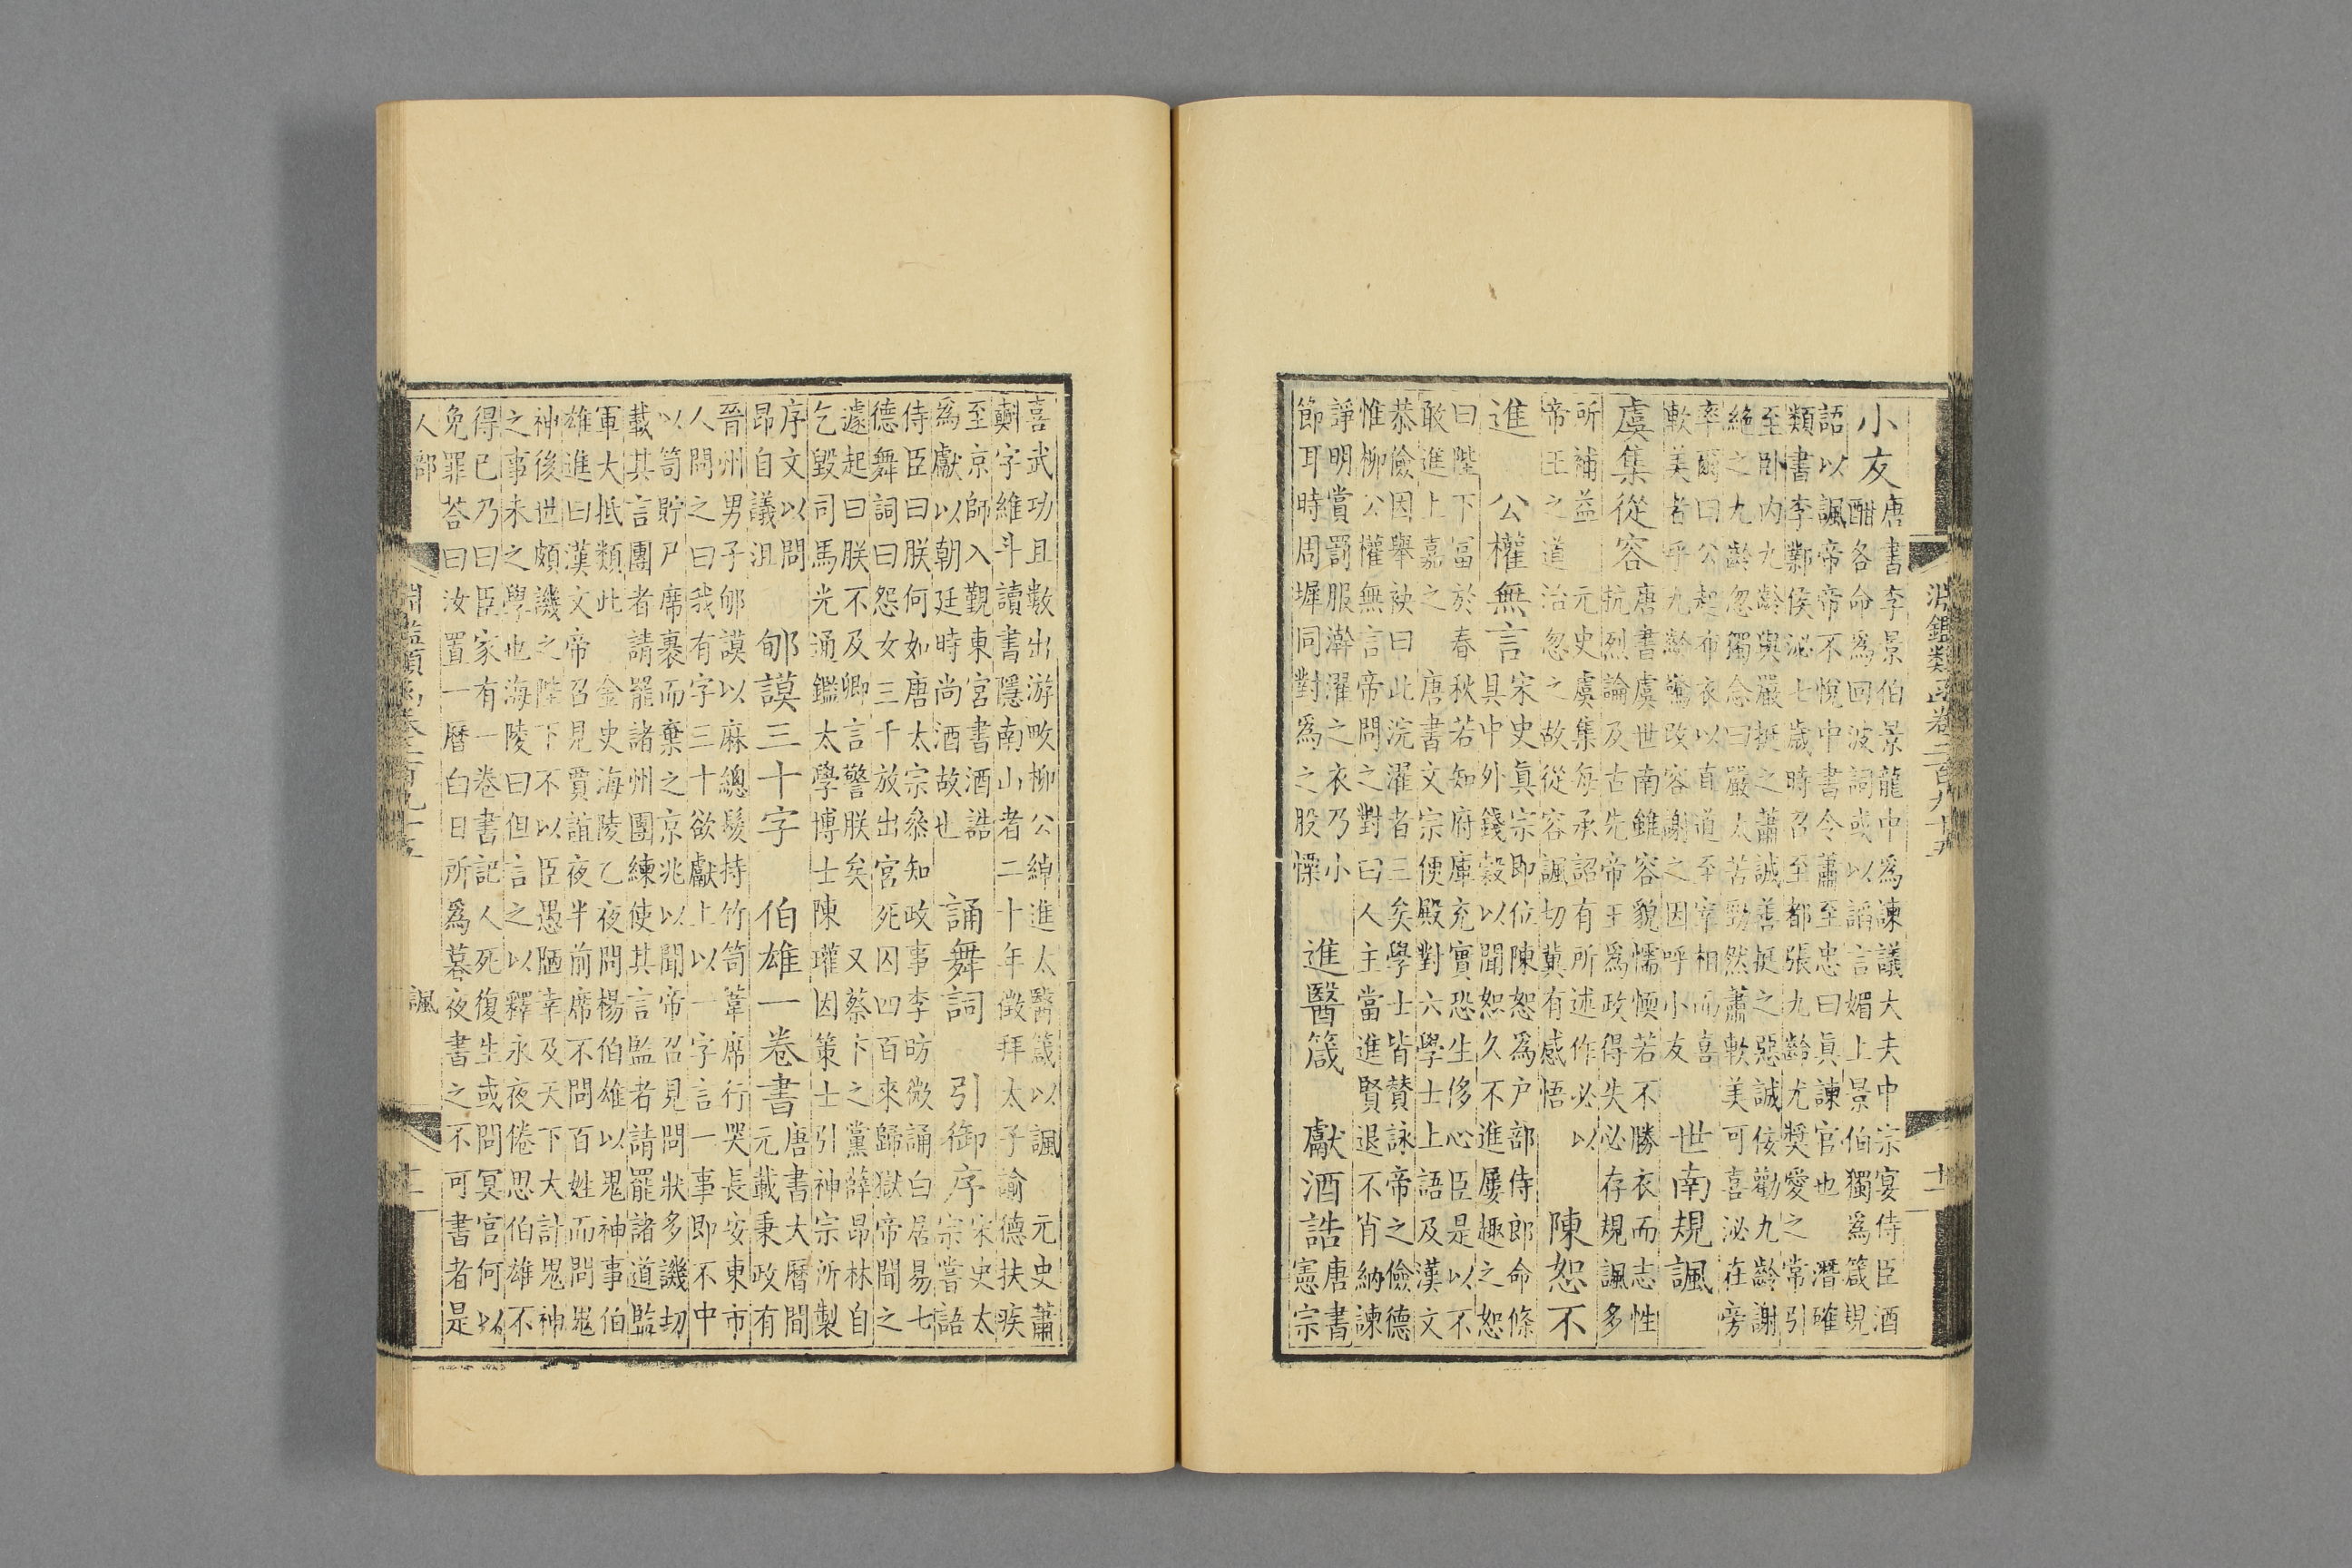 淵鑑類函卷二百九十五
十一
小友
唐書李景伯景龍中為諫議大夫中宗宴侍臣酒
酣各命為回波詞或以諂言媚上景伯獨為箴規
語以諷帝帝不悅中書令蕭至忠曰眞諫官也　潛確
類書李鄴侯泌七歲時召至都張九齡尤獎愛之常引
至卧内九齡與嚴挺之蕭誠善挺之惡誠佞勸九齡謝
絶之九齡忽獨念曰嚴太苦勁然蕭軟美可喜泌在旁
率爾曰公起布衣以直道至宰相而喜
軟美者乎九齡驚改容謝之因呼小友
世南規諷
虞集從容
唐書虞世南雖容貌懦愞若不勝衣而志性
抗烈論及古先帝王為政得失必存規諷多
所補益　元史虞集每承詔有所述作必以
帝王之道治忽之故從容諷切冀有感悟
陳恕不
進　公權無言
宋史眞宗即位陳恕為户部侍郎命條
具中外錢穀以聞恕久不進屢趣之恕
曰陛下富於春秋若知府庫充實恐生侈心臣是以不
敢進上嘉之　唐書文宗便殿對六學士上語及漢文
恭儉因舉袂曰此浣濯者三矣學士皆贊詠帝之儉德
惟柳公權無言帝問之對曰人主當進賢退不肖納諫
諍明賞罰服澣濯之衣乃小
節耳時周墀同對為之股慄
進醫箴　獻酒誥
唐書
憲宗
喜武功且數出游畋柳公綽進太醫箴以諷　元史蕭
𣂏字維斗讀書隱南山者二十年徵拜太子諭德扶疾
至京師入覲東宮書酒誥
為獻以朝廷時尚酒故也
誦舞詞　引御序
宋史太
宗嘗語
侍臣曰朕何如唐太宗叅知政事李昉微誦白居易七
德舞詞曰怨女三千放出宮死囚四百來歸獄帝聞之
遽起曰朕不及卿言警朕矣　又蔡卞之黨薛昂林自
乞毀司馬光通鑑太學博士陳瓘因策士引神宗所製
序文以問
昂自議沮
郇謨三十字　伯雄一卷書
唐書大曆間
元載秉政有
晉州男子郇謨以麻總髮持竹笥葦席行哭長安東市
人問之曰我有字三十欲獻上以一字言一事即不中
以笥貯尸席裹而棄之京兆以聞帝召見問狀多譏切
載其言團者請罷諸州團練使其言監者請罷諸道監
軍大抵類此　金史海陵乙夜問楊伯雄以鬼神事伯
雄進曰漢文帝召見賈誼夜半前席不問百姓而問鬼
神後世頗譏之陛下不以臣愚陋幸及天下大計鬼神
之事未之學也海陵曰但言之以釋永夜倦思伯雄不
得已乃曰臣家有一卷書記人死復生或問冥官何以
免罪荅曰汝置一曆白日所爲暮夜書之不可書者是
人部
淵鑑類函卷二百九十五
諷